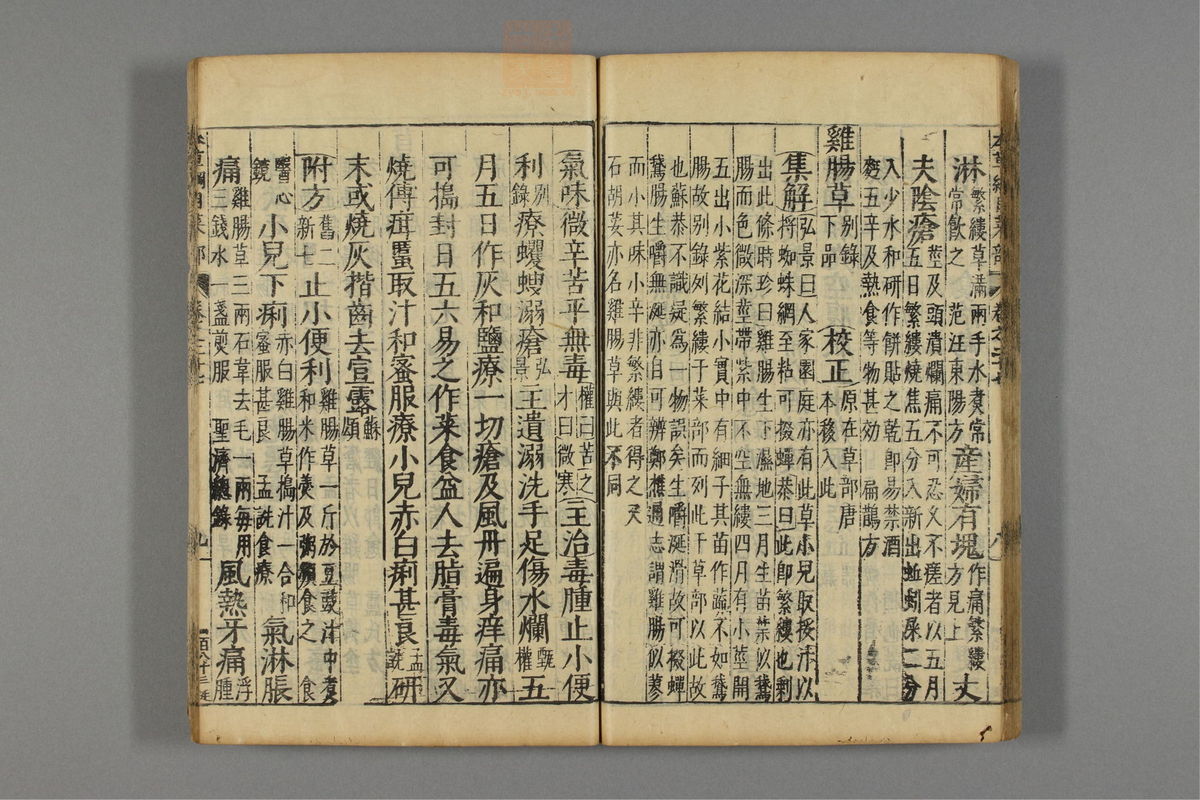 淋繁縷草滿兩手水煮常
常飲之　范汪東陽方產婦有塊作痛繁縷
方見上丈
夫陰瘡莖及頭潰爛痛不可忍久不瘥者以五月
五日繁縷燒焦五分入新出蚯蚓屎二分
入少水和研作餅貼之乾即易禁酒
麪五辛及熱食等物甚効　扁鵲方
雞腸草別錄
下品校正原在草部唐
本移入此
集解弘景曰人家園庭亦有此草小兒取挼汁以
捋蜘蛛網至粘可掇蟬恭曰此即繁縷也剩
出此條時珍曰雞腸生下濕地三月生苗葉似鵞
腸而色微深莖帶紫中不空無縷四月有小莖開
五出小紫花結小實中有細子其苗作蔬不如鵞
腸故別錄列繁縷于菜部而列此于草部以此故
也蘇恭不識疑為一物誤矣生嚼涎滑故可掇蟬
鵞腸生嚼無涎亦自可辨鄭樵通志謂雞腸似蓼
而小其味小辛非繁縷者得之又
石胡荽亦名雞腸草與此不同
氣味微辛苦平無毒權曰苦之
才曰微寒主治毒腫止小便
利別
錄療蠼螋溺瘡弘
景主遺溺洗手足傷水爛甄
權五
月五日作灰和鹽療一切瘡及風丹遍身痒痛亦
可搗封日五六易之作菜食益人去脂膏毒氣又
燒傅疳䘌取汁和蜜服療小兒赤白痢甚良孟
詵研
末或燒灰揩齒去宣露蘇
頌
附方舊二
新七止小便利雞腸草一斤於豆豉汁中煮
和米作羹及粥頻食之　食
醫心
鏡小兒下痢赤白雞腸草搗汁一合和
蜜服甚良　孟詵食療氣淋脹
痛雞腸草三兩石韋去毛一兩每用
三錢水一盞煎服　聖濟總錄風熱牙痛浮
腫